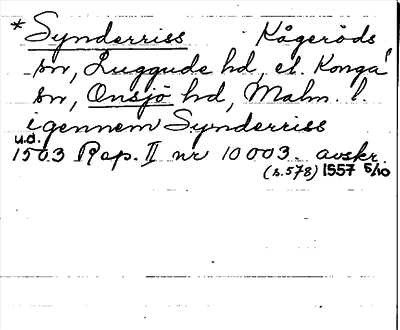 * Synderriss Kågeröds
sn, Luggude hd, el. Konga
sn, Onsjö hd, Malm. l.
igennem Synderriss
u.d.
1503 Rep. II nr 10003. avskr.
(s.578) 1557 5/10